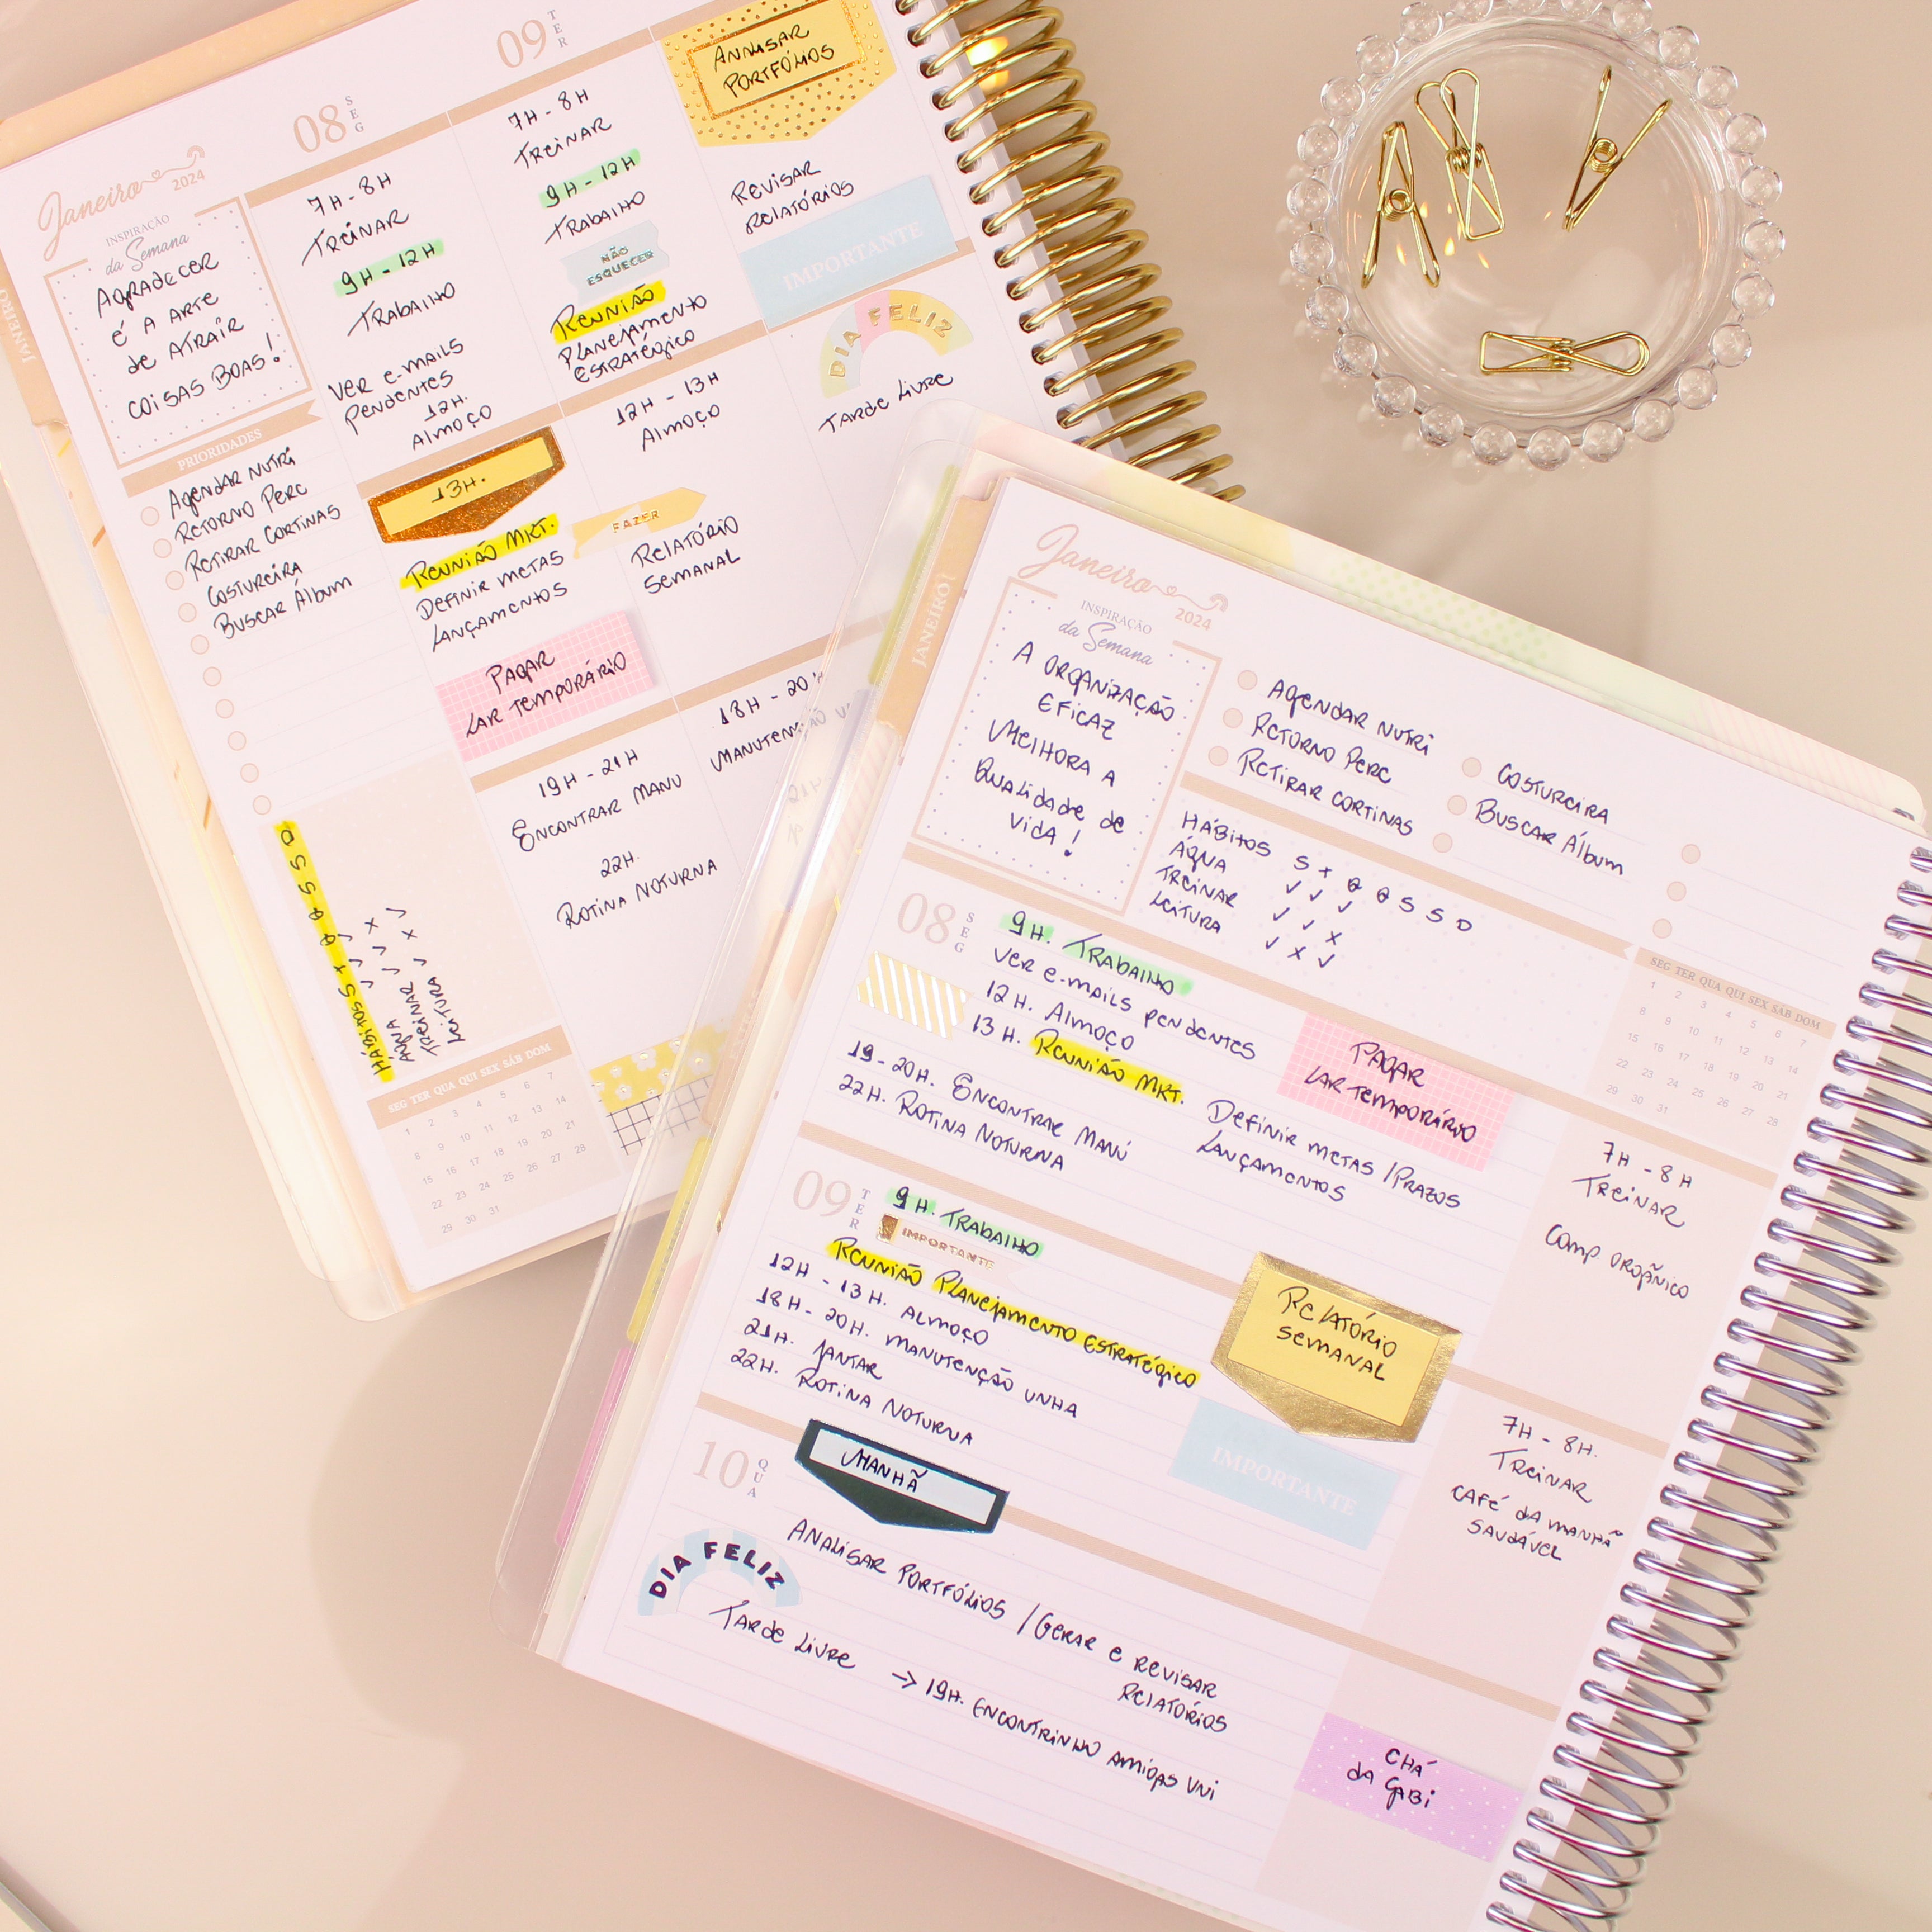 JANEIRO
Janeiro 2024
INSPIRAÇÃO
da Semana
AGRADECER
É A ARTE
DE ATRAIR
COISAS BOAS!
PRIORIDADES
AGENDAR NUTRI
RETORNO PERC
RETIRAR CORTINAS
COSTUREIRA
BUSCAR ÁLBUM
HÁBITOS S T Q Q S S D
ÁGUA ✓ ✓ ✓
TREINAR ✓ ✓ X
LEITURA ✓ X ✓
SEG TER QUA QUI SEX SÁB DOM
1 2 3 4 5 6 7
8 9 10 11 12 13 14
15 16 17 18 19 20 21
22 23 24 25 26 27 28
29 30 31
08 SEG
7H - 8H
TREINAR
9H - 12H
TRABALHO
VER E-MAILS
PENDENTES
12H.
ALMOÇO
13H.
REUNIÃO MKT.
DEFINIR METAS
LANÇAMENTOS
PAGAR
LAR TEMPORÁRIO
19H - 21H
ENCONTRAR MANU
22H.
ROTINA NOTURNA
09 TER
7H - 8H
TREINAR
9H - 12H
TRABALHO
NÃO
ESQUECER
REUNIÃO
PLANEJAMENTO
ESTRATÉGICO
12H - 13H
ALMOÇO
FAZER
RELATÓRIO
SEMANAL
18H - 20H
MANUTENÇÃO
ANALISAR
PORTFÓLIOS
REVISAR
RELATÓRIOS
IMPORTANTE
DIA FELIZ
TARDE LIVRE
JANEIRO
Janeiro 2024
INSPIRAÇÃO
da Semana
A ORGANIZAÇÃO
EFICAZ
MELHORA A
QUALIDADE DE
VIDA!
AGENDAR NUTRI
RETORNO PERC
RETIRAR CORTINAS
COSTUREIRA
BUSCAR ÁLBUM
HÁBITOS S T Q Q S S D
ÁGUA ✓ ✓ ✓
TREINAR ✓ ✓ X
LEITURA ✓ X ✓
SEG TER QUA QUI SEX SÁB DOM
1 2 3 4 5 6 7
8 9 10 11 12 13 14
15 16 17 18 19 20 21
22 23 24 25 26 27 28
29 30 31
08 SEG
9H. TRABALHO
VER E-MAILS PENDENTES
12H. ALMOÇO
13H. REUNIÃO MKT.
DEFINIR METAS / PRAZOS
LANÇAMENTOS
19-20H. ENCONTRAR MANÚ
22H. ROTINA NOTURNA
PAGAR
LAR TEMPORÁRIO
7H - 8H
TREINAR
COMP ORGÂNICO
09 TER
9H. TRABALHO
IMPORTANTE
REUNIÃO PLANEJAMENTO ESTRATÉGICO
12H - 13H. ALMOÇO
18H - 20H. MANUTENÇÃO UNHA
21H. JANTAR
22H. ROTINA NOTURNA
RELATÓRIO
SEMANAL
IMPORTANTE
7H - 8H.
TREINAR
CAFÉ DA MANHÃ
SAUDÁVEL
10 QUA
MANHÃ
ANALISAR PORTFÓLIOS / GERAR E REVISAR
RELATÓRIOS
DIA FELIZ
TARDE LIVRE → 19H. ENCONTRINHO AMIGAS UNI
CHÁ
DA GABI